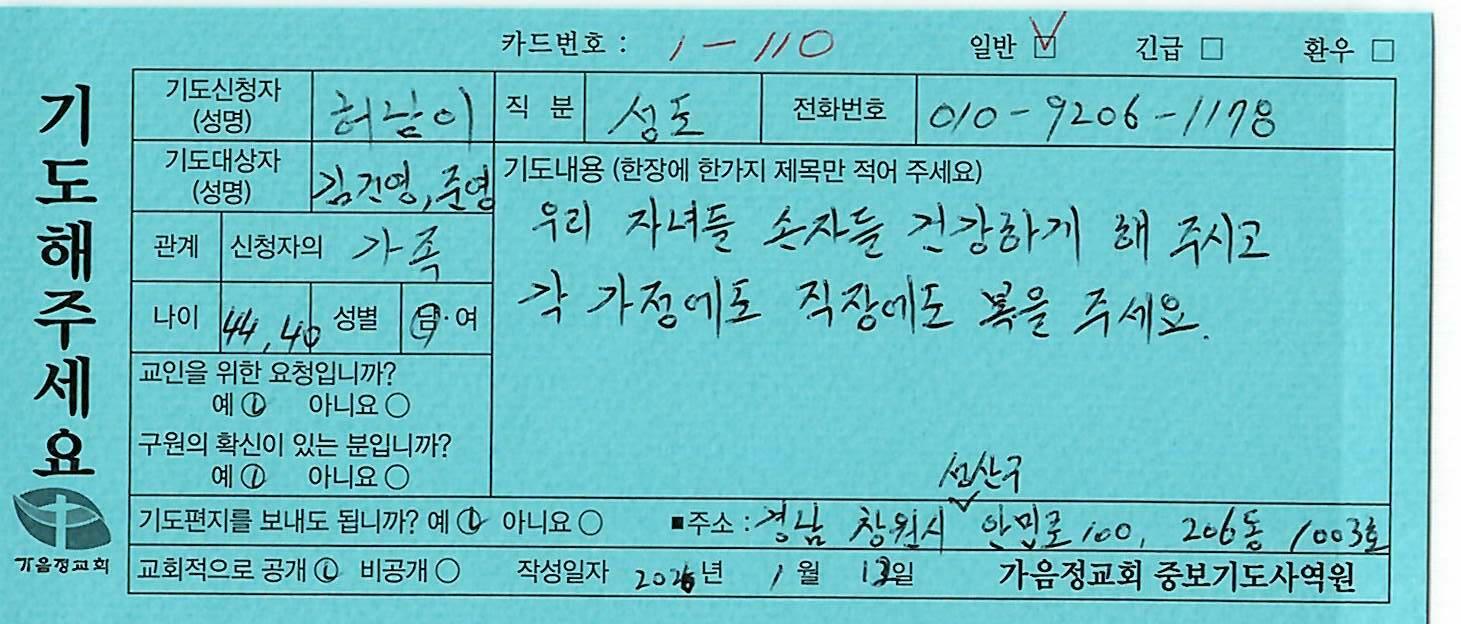 카드번호 : 1-110 일반 ☑ 긴급 □ 환우 □
기도해주세요
기도신청자 (성명) 허남이 직 분 성도 전화번호 010-9206-1178
기도대상자 (성명) 김진영, 준영
기도내용 (한장에 한가지 제목만 적어 주세요)
우리 자녀들 손자들 건강하게 해 주시고
각 가정에도 직장에도 복을 주세요.
관계 신청자의 가족
나이 44, 40 성별 남·여
교인을 위한 요청입니까?
예 아니요 ○
구원의 확신이 있는 분입니까?
예 아니요 ○
기도편지를 보내도 됩니까? 예 아니요 ○ ■주소 : 경남 창원시 성산구 안민로 100, 206동 1003호
교회적으로 공개 비공개 ○ 작성일자 2026년 1월 일 가음정교회 중보기도사역원
가음정교회